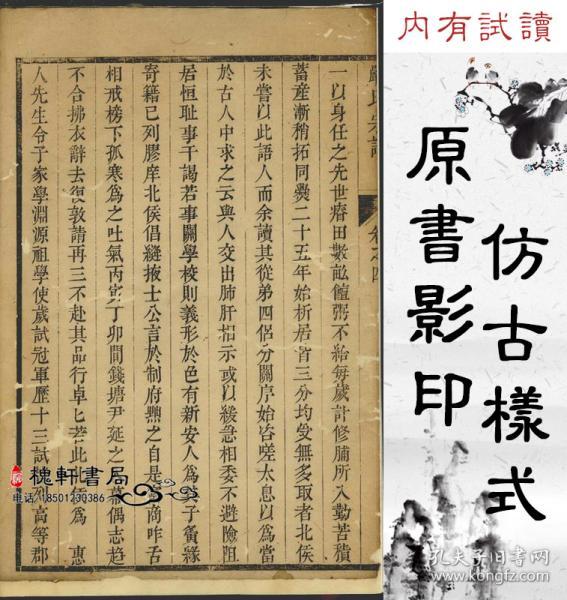 內有試讀
原書影印
仿古樣式
一以身任之先世瘠田數畝饘粥不給每歲計修脯所入勤苦積
蓄産漸稍拓同爨二十五年始析居皆三分均受無多取者北侯
未嘗以此語人而余讀其從弟四侶分關序始咨嗟太息以爲當
於古人中求之云與人交出肺肝相示或以緩急相委不避險阻
居恒耻事干謁若事關學校則義形於色有新安人爲子夤緣
寄籍已列膠庠北侯倡縫掖士公言於制府黜之自是商咋舌
相戒榜下孤寒爲之吐氣丙寅丁卯間錢塘尹延之幕偶志趋
不合拂衣辭去復敦請再三不赴其品行卓匕若此北侯爲惠
人先生令子家學淵源祖學使歲試冠軍歷十三試列高等郡
卷之四
槐軒書局
电话:18501230386
孔夫子旧书网
www.kongfz.com